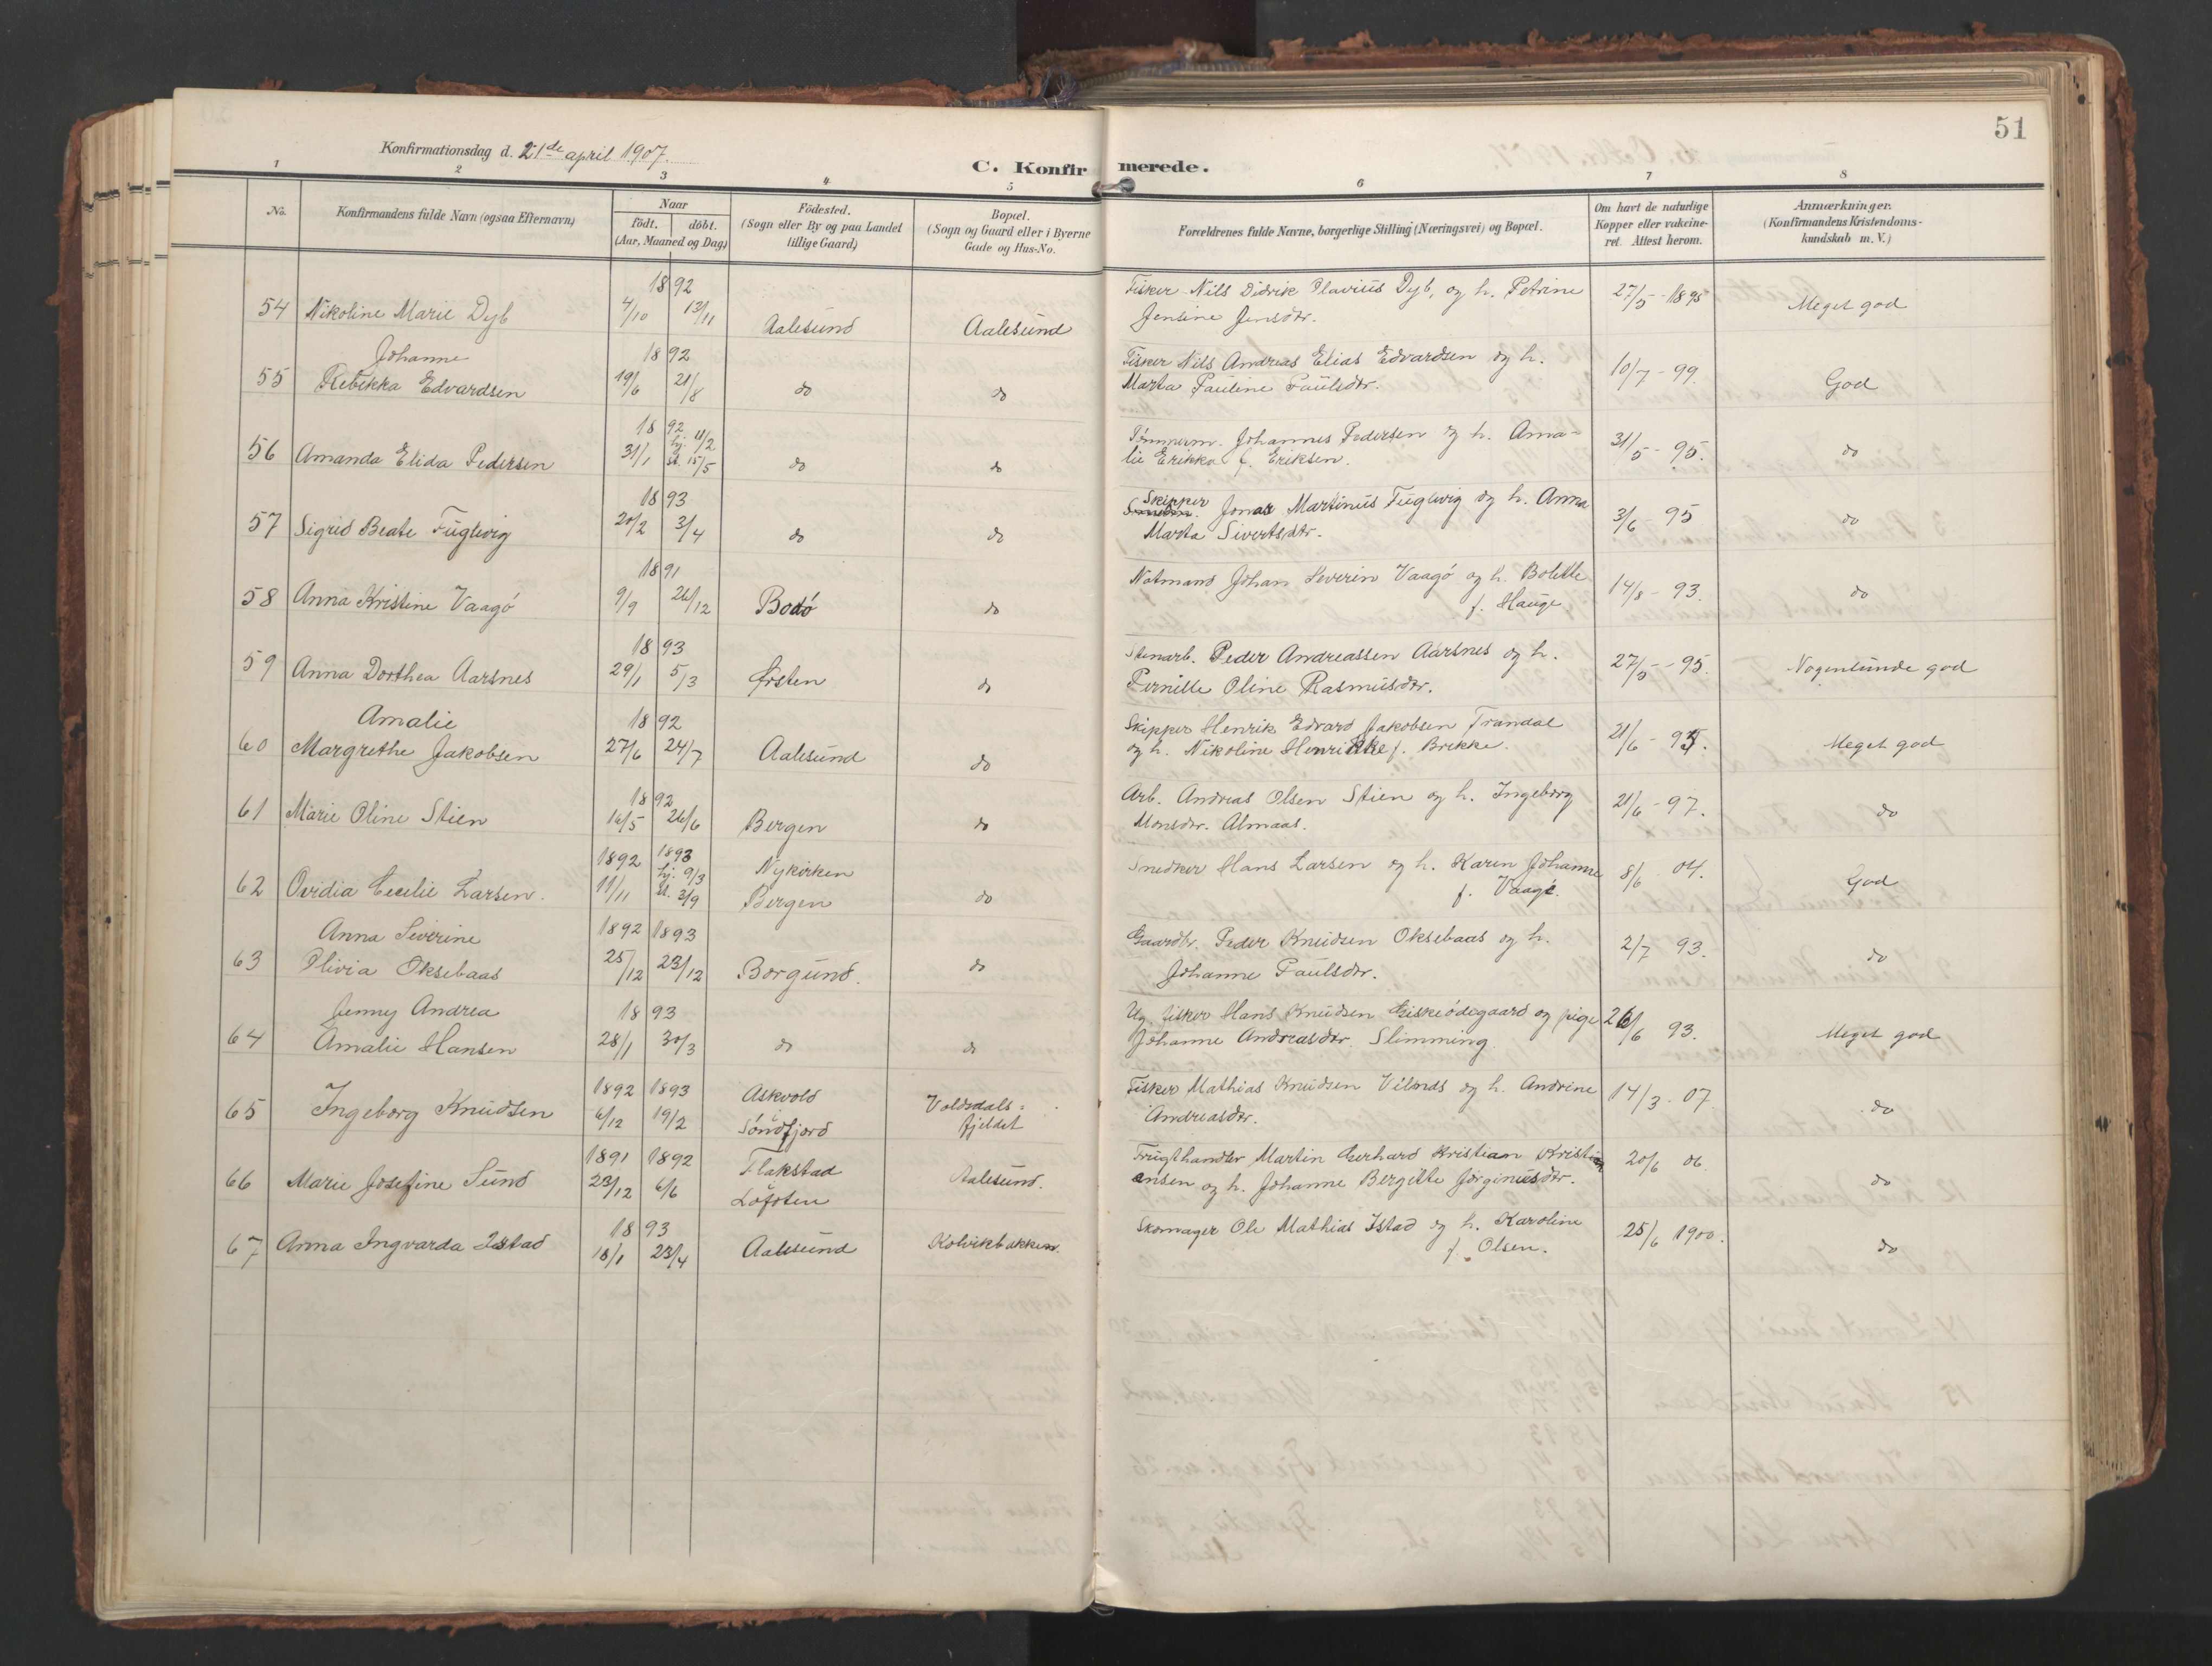 51
Konfirmationsdag d. 21de april 1907.
C. Konfirmerede.
1 2 3 4 5 6 7 8
No.
Konfirmandens fulde Navn (ogsaa Efternavn)
Naar
födt. döbt.
(Aar, Maaned og Dag)
Födested.
(Sogn eller By og paa Landet
tillige Gaard)
Bopæl.
(Sogn og Gaard eller i Byerne
Gade og Hus-No.
Forældrenes fulde Navne, borgerlige Stilling (Næringsvei) og Bopæl.
Om havt de naturlige
Kopper eller vakcine-
ret. Attest herom.
Anmærkninger.
(Konfirmandens Kristendoms-
kundskab m. V.)
1892
54 Nikoline Marie Dyb 4/10 13/11 Aalesund Aalesund
Fisker Nils Didrik Olavius Dyb, og h. Petrine
Jensine Jensdtr.
27/5 - 1895 Meget god
Johanne 1892
55 Rebekka Edvardsen 19/6 21/8 do do
Fisker Nils Andreas Elias Edvardsen og h.
Marta Pauline Paulsdtr.
10/7 - 99. God
1892
56 Amanda Elida Pedersen 31/1 hj. 11/2 st. 15/5 do do
Tömmerm. Johannes Pedersen og h. Ama-
lie Erikka f. Eriksen.
31/5 - 95. do
1893
57 Sigrid Beate Fuglevig 20/2 3/4 do do
Skipper Jonas Martinus Fuglevig og h. Anna
Marta Sivertsdtr.
3/6 - 95 do
1891
58 Anna Kristine Vaagö 9/9 26/12 Bodö do
Notmand Johan Severin Vaagö og h. Bolette
f. Hauge
14/8 - 93. do
1893
59 Anna Dorthea Aarsnes 29/1 5/3 Örsten do
Stenarb. Peder Andreassen Aarsnes og h.
Pernille Oline Rasmusdtr.
27/5 - 95. Nogenlunde god
Amalie 1892
60 Margrethe Jakobsen 27/6 24/7 Aalesund do
Skipper Henrik Edvard Jakobsen Trandal
og h. Nikoline Henrikke f. Brekke.
21/6 - 95. Meget god
1892
61 Marie Oline Stien 16/5 26/6 Bergen do
Arb. Andreas Olsen Stien og h. Ingeborg
Monsdtr. Almaas.
21/6 - 97. do
1892 1893 Nykirken
62 Ovidia Cecilie Larsen. 11/11 hj. 9/3 st. 3/9 Bergen do
Snedker Hans Larsen og h. Karen Johanne
f. Vaagö.
8/6 04. God
Anna Severine 1892 1893
63 Olivia Oksebaas 25/12 23/12 Borgund. do
Gaardbr. Peder Knudsen Oksebaas og h.
Johanne Paulsdtr.
2/7 93. do
Jenny Andrea 1893
64 Amalie Hansen 28/1 30/3 do do
Ug. fisker Hans Knudsen Giskeödegaard og pige
Johanne Andreasdtr. Slimming
26/6 93. Meget god
1892 1893 Askvold
65 Ingeborg Knudsen 6/12 19/2 Söndfjord Voldsdals=
fjeldet
Fisker Mathias Knudsen Vilnæs og h. Andrine
Andreasdtr.
14/3 - 07. do
1891 1892 Flakstad
66 Marie Josefine Sund 23/12 6/6 Lofoten Aalesund.
Frugthandler Martin Gerhard Kristian Kristi
ansen og h. Johanne Bergitte Jörginusdtr.
20/6 06. do
1893
67 Anna Ingvarda Istad 18/1 23/4 Aalesund Kolvikbakken.
Skomager Ole Mathias Istad og h. Karoline
f. Olsen.
25/6 1900. do